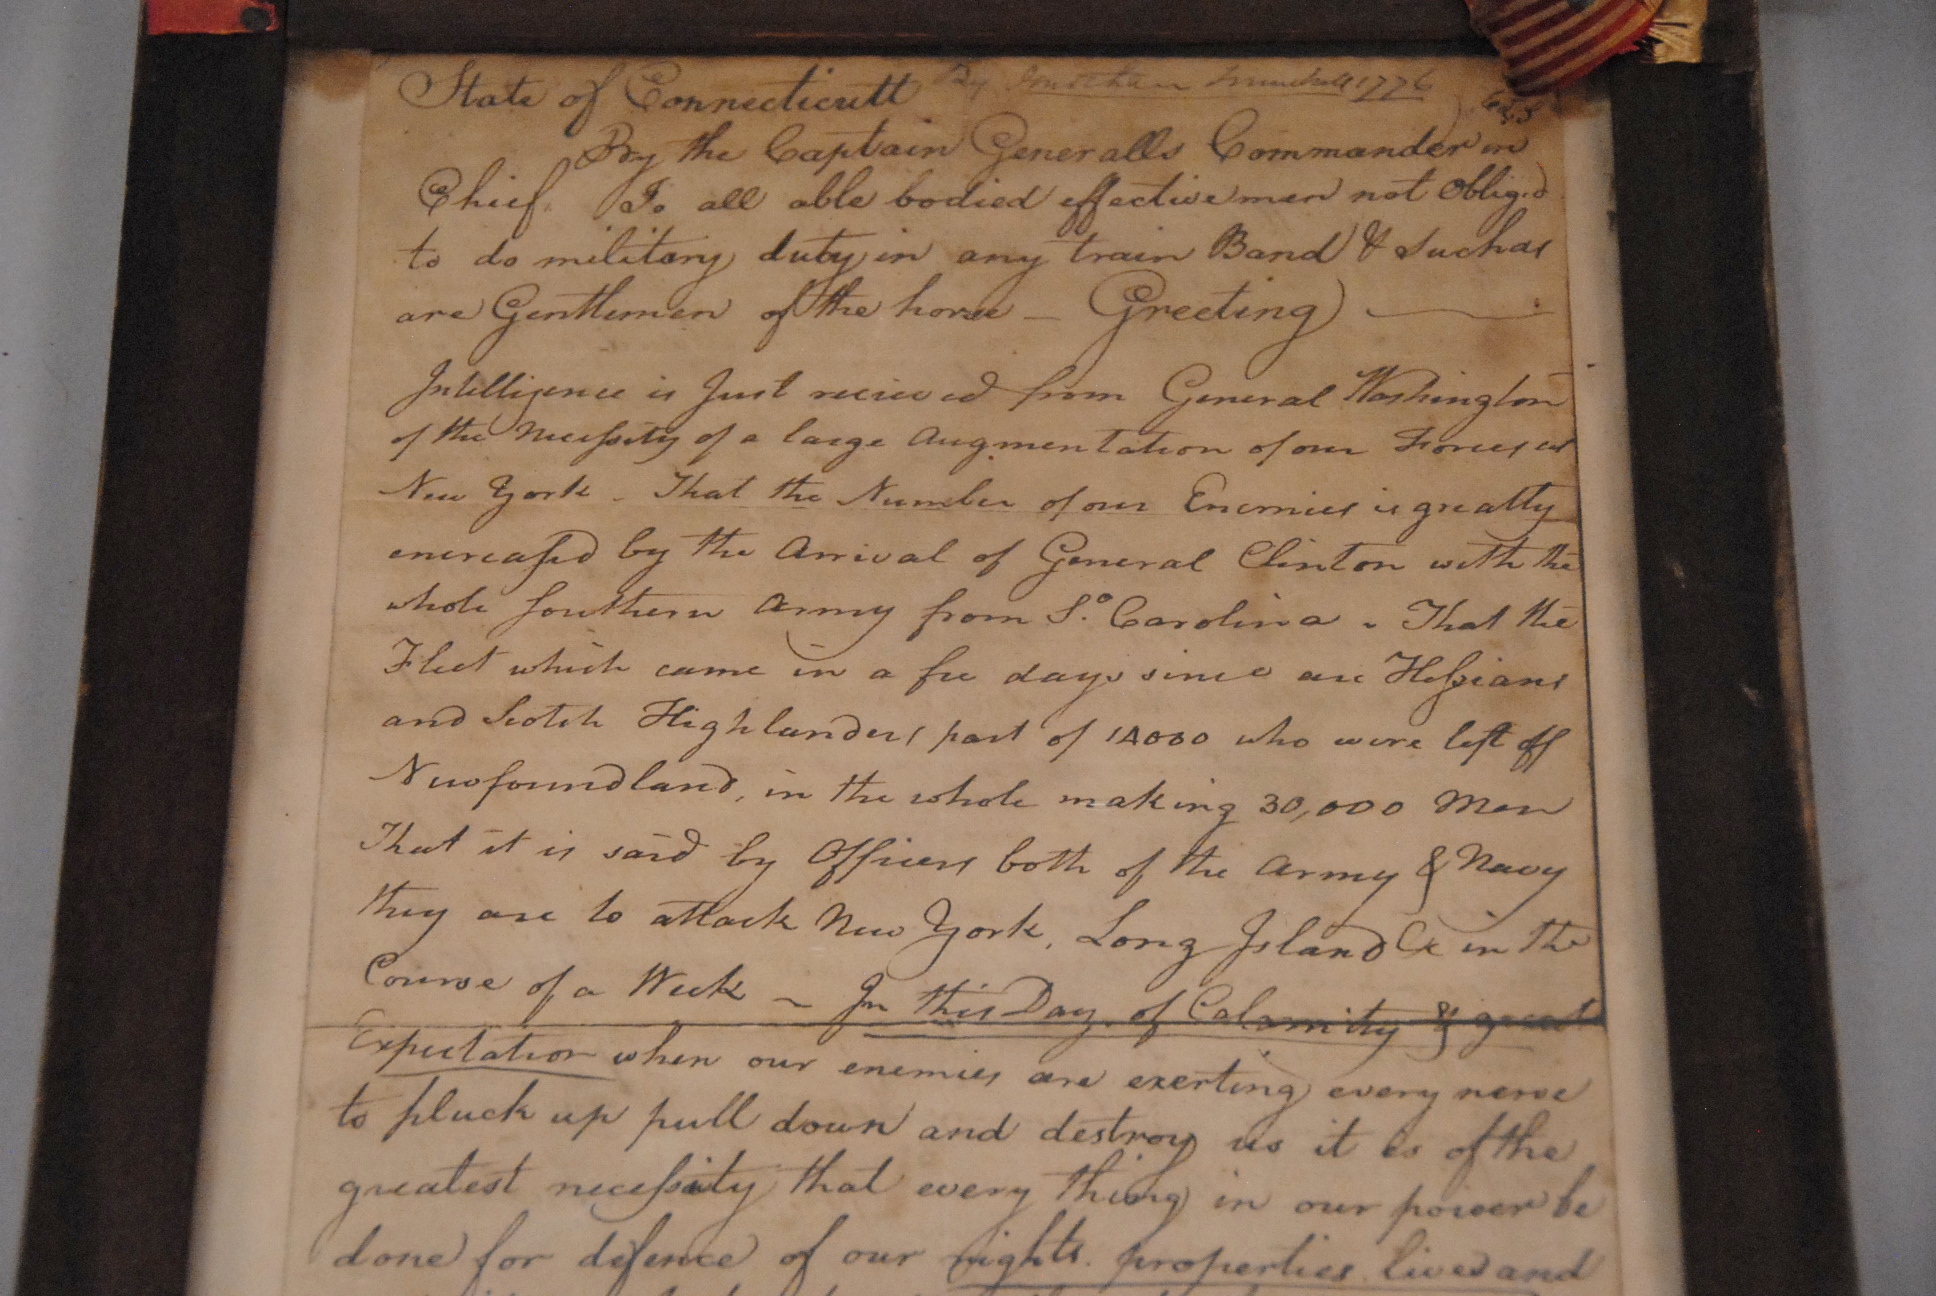 State of Connecticutt By Jonathan Trumbull 1776
By the Captain Generall & Commander in
Chief. To all able bodied effective men not Oblig.d
to do military duty in any train Band & Such as
are Gentlemen of the horse — Greeting
Intelligence is Just recieved from General Washington
of the Necessity of a large Augmentation of our Forces at
New York - That the Number of our Enemies is greatly
encreased by the Arrival of General Clinton with the
whole Southern Army from So. Carolina - That the
Fleet which came in a few days since are Hessians
and Scotch Highlanders part of who were left off
Newfoundland, in the whole making 30,000 Men
That it is said by Officers both of the Army & Navy
they are to attack New York, Long Island &c in the
Course of a Week ~ In this Day of Calamity & great
Expectation when our enemies are exerting every nerve
to pluck up pull down and destroy us it is of the
greatest necessity that every thing in our power be
done for defence of our rights. properties lives and